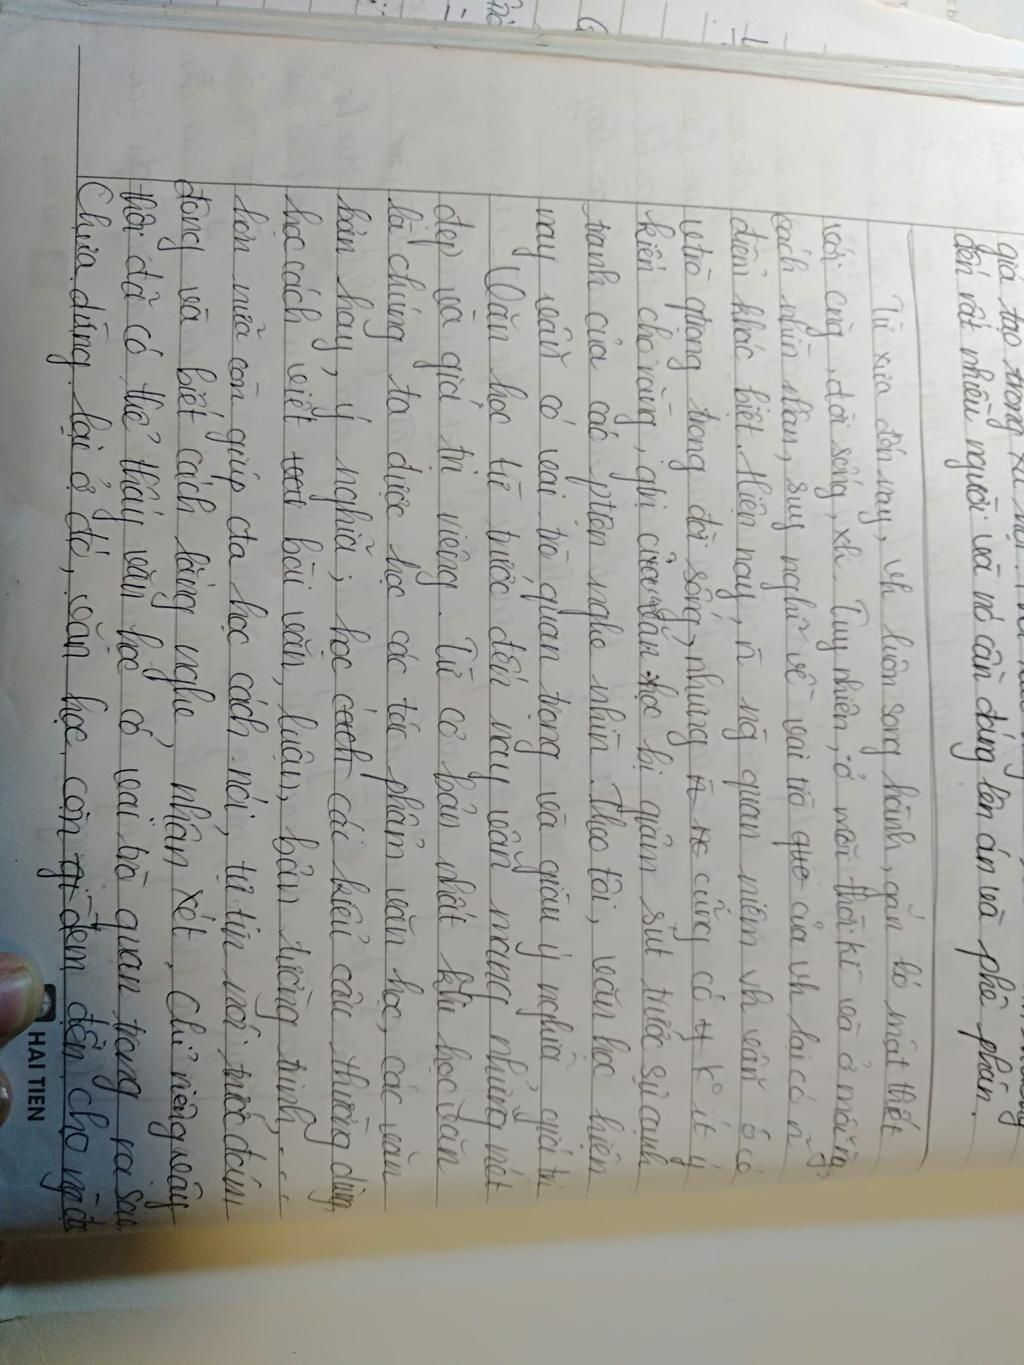 giả tạo trong xã hội.
đến rất nhiều người và nó cần đáng lên án và phê phán.
Từ xưa đến nay, vh luôn song hành, gắn bó mật thiết
với cng, đời sống, xh. Tuy nhiên, ở mỗi thời kì và ở mỗi ng
cách nhìn nhận, suy nghĩ về vai trò que của vh lại có n~
điểm khác biệt. Hiện nay, n~ ng quan niệm vh vẫn có
vtrò qtrọng trong đời sống, nhưng cũng có k ít ý
kiến cho rằng, gtrị của văn học bị giảm sút trước sự cạnh
tranh của các ptiện nghe nhìn. Theo tôi, văn học hiện
nay vẫn có vai trò quan trọng và giàu ý nghĩa giá trị
Văn học từ trước đến nay vẫn mang những nét
đẹp và giá trị riêng. Từ cơ bản nhất khi học văn
là chúng ta được học các tác phẩm văn học, các văn
bản hay, ý nghĩa; học cách các kiểu câu thường dùng,
học cách viết bài văn, luận, bản tường trình,...
hơn nữa còn giúp cta học cách nói, tự tin nói trước đám
đông và biết cách lắng nghe, nhận xét. Chỉ riêng vậy
thôi đã có thể thấy văn học có vai trò quan trọng ra sao
Chưa dừng lại ở đó, văn học còn gi đem đến cho ng đọc
HAI TIEN